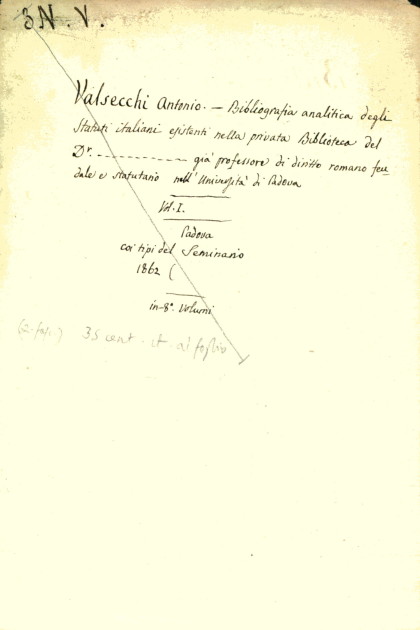 3 N. V.
Valsecchi Antonio. — Bibliografia analitica degli
Statuti italiani esistenti nella privata Biblioteca del
Dr. ------------ già professore di diritto romano feu
dale e statutario nell'Università di Padova
Vol. I.
Padova
coi tipi del Seminario
1862 (
in-8°. Volumi
35 cent. it. al foglio